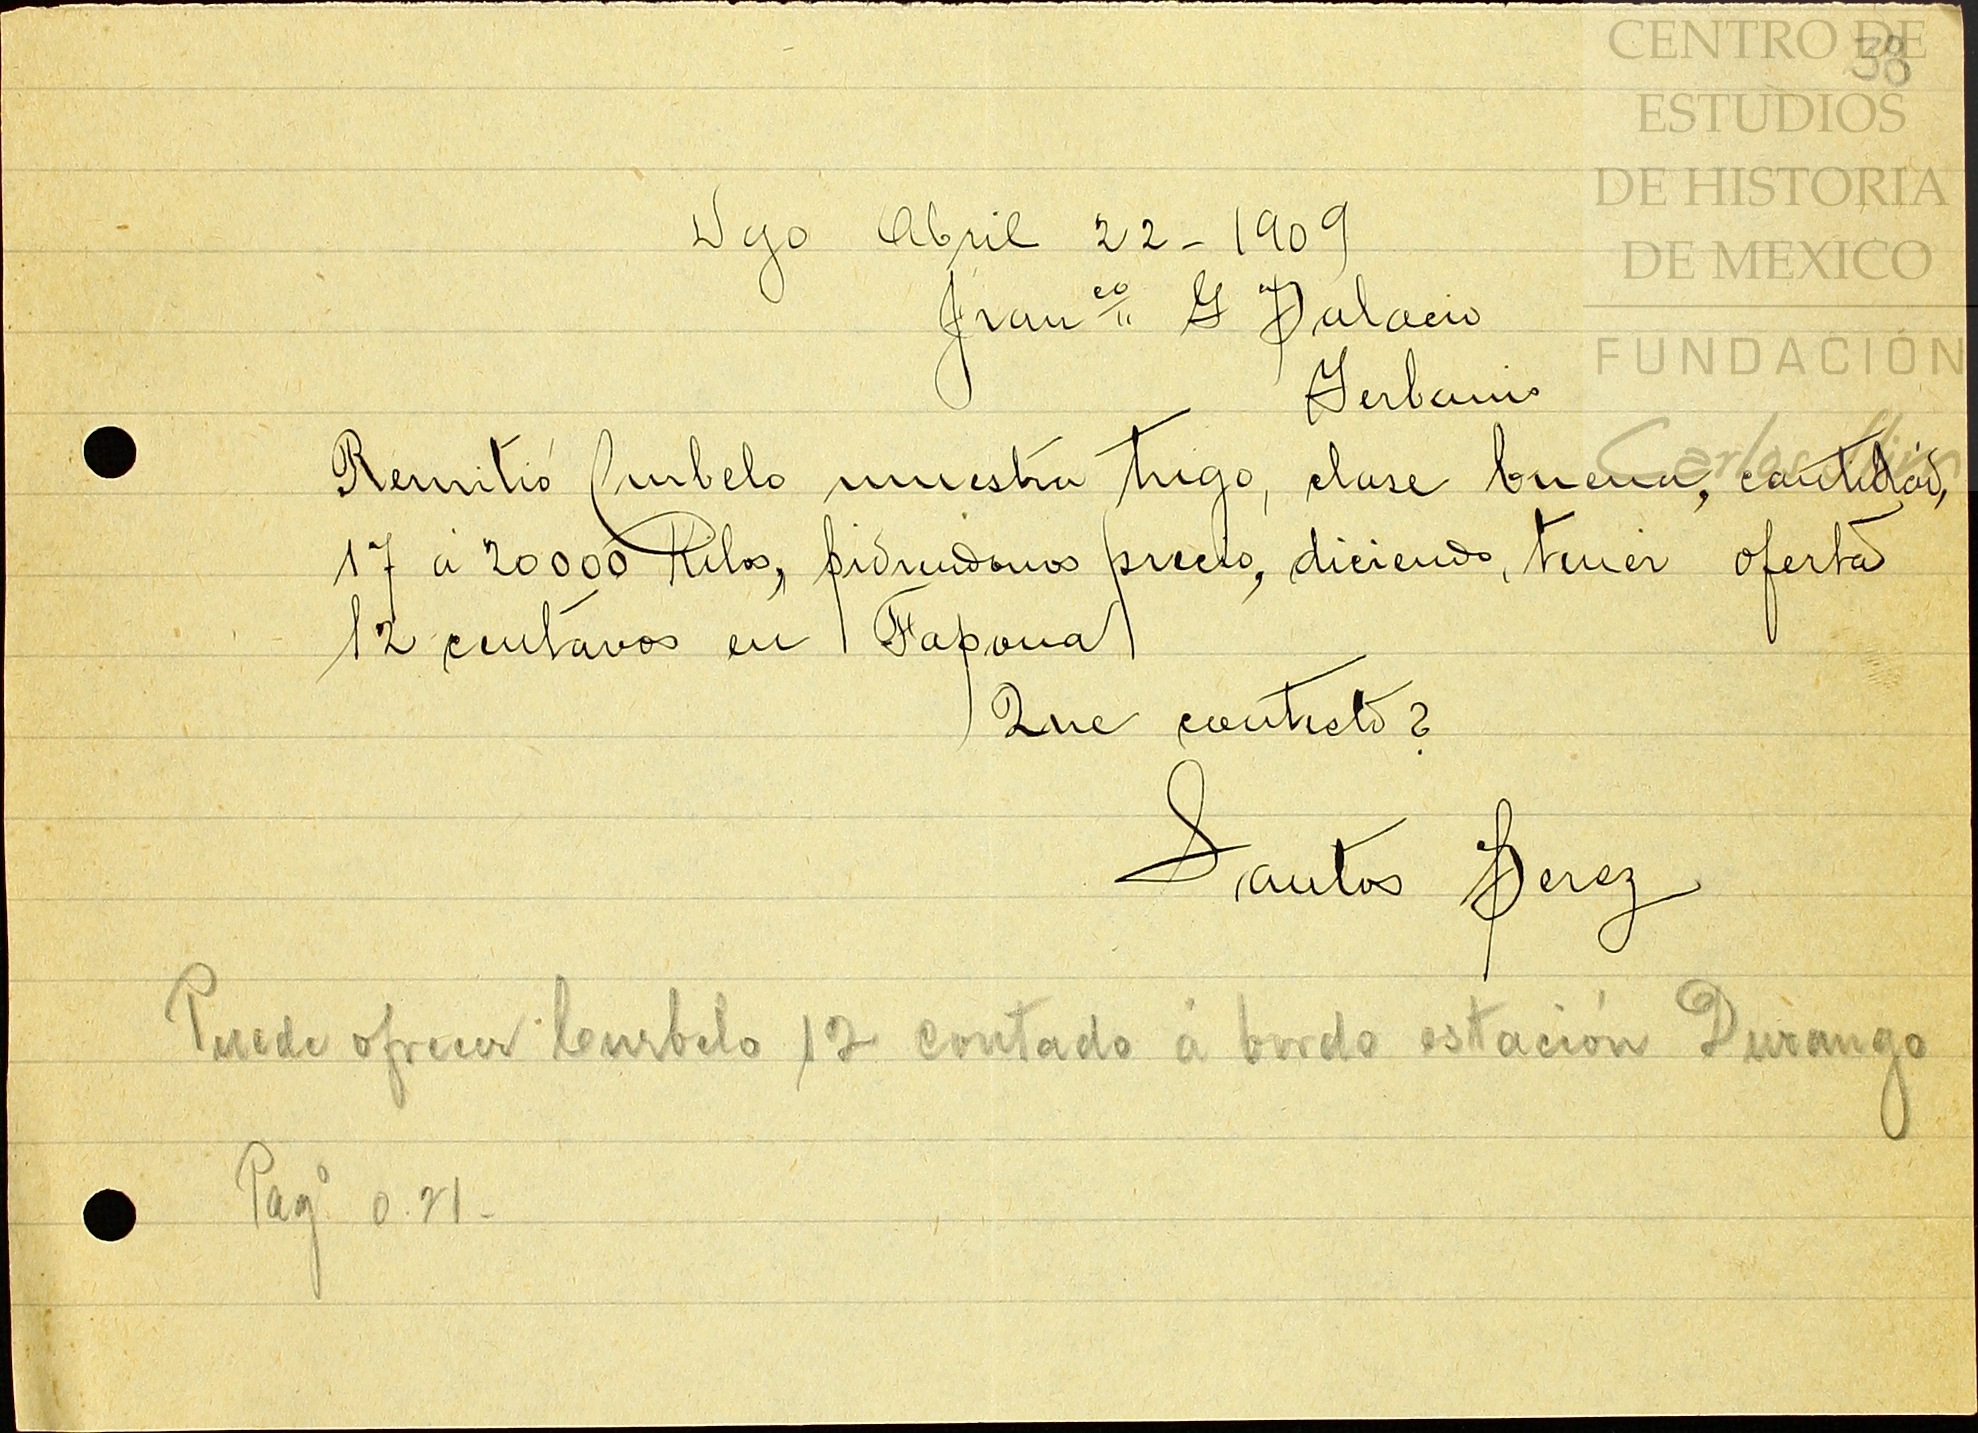 38
CENTRO DE
ESTUDIOS
DE HISTORIA
DE MEXICO
FUNDACIÓN
Carlos Slim
Dgo Abril 22-1909
Franco G Palacio
Gerbanis
Remitió Curbelo muestra trigo, clase buena, cantidad,
17 á 20000 Kilos, pidiendonos precio, diciendo, tener oferta
12 centavos en Tapona
Que contesto?
Santos Perez
Puede ofrecer Curbelo 12 contado á bordo estación Durango
Pagº 0.71-